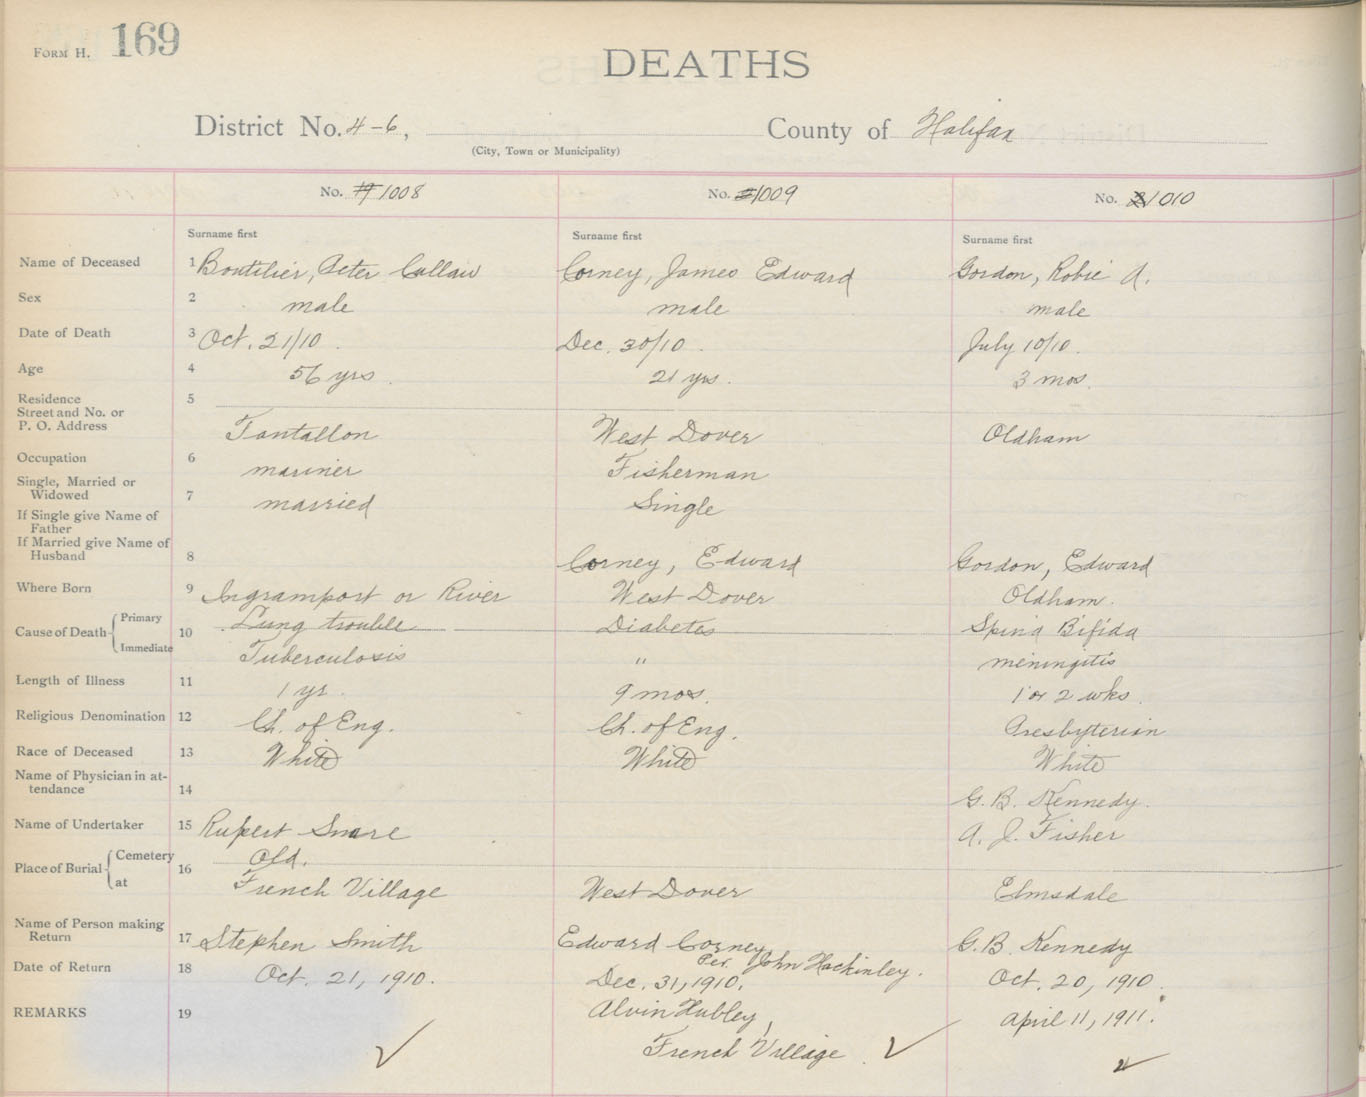 FORM H. 169
DEATHS
District No. 4-6, County of Halifax
(City, Town or Municipality)
No. 1008 No. 1009 No. 1010
Surname first Surname first Surname first
Name of Deceased 1 Boutilier, Peter Corney, James Edward Gordon, Robie A.
Sex 2 male male male
Date of Death 3 Oct. 21/10. Dec. 30/10. July 10/10.
Age 4 56 yrs. 21 yrs. 3 mos.
Residence 5
Street and No. or
P. O. Address Tantallon West Dover Oldham
Occupation 6 mariner Fisherman
Single, Married or
Widowed 7 married Single
If Single give Name of
Father
If Married give Name of
Husband 8 Corney, Edward Gordon, Edward
Where Born 9 Ingramport or River West Dover Oldham.
Cause of Death Primary 10 Lung trouble Diabetes Spina Bifida
Immediate Tuberculosis " meningitis
Length of Illness 11 1 yr. 9 mos. 1 or 2 wks.
Religious Denomination 12 Ch. of Eng. Ch. of Eng. Presbyterian
Race of Deceased 13 White White White
Name of Physician in at-
tendance 14 G. B. Kennedy.
Name of Undertaker 15 Rupert Snare A. J. Fisher
Place of Burial Cemetery 16 Old.
at French Village West Dover Elmsdale
Name of Person making
Return 17 Stephen Smith Edward Corney G. B. Kennedy
Per. John
Date of Return 18 Oct. 21, 1910. Dec. 31, 1910. Oct. 20, 1910.
REMARKS 19 Alvin Hubley, April 11, 1911.
French Village